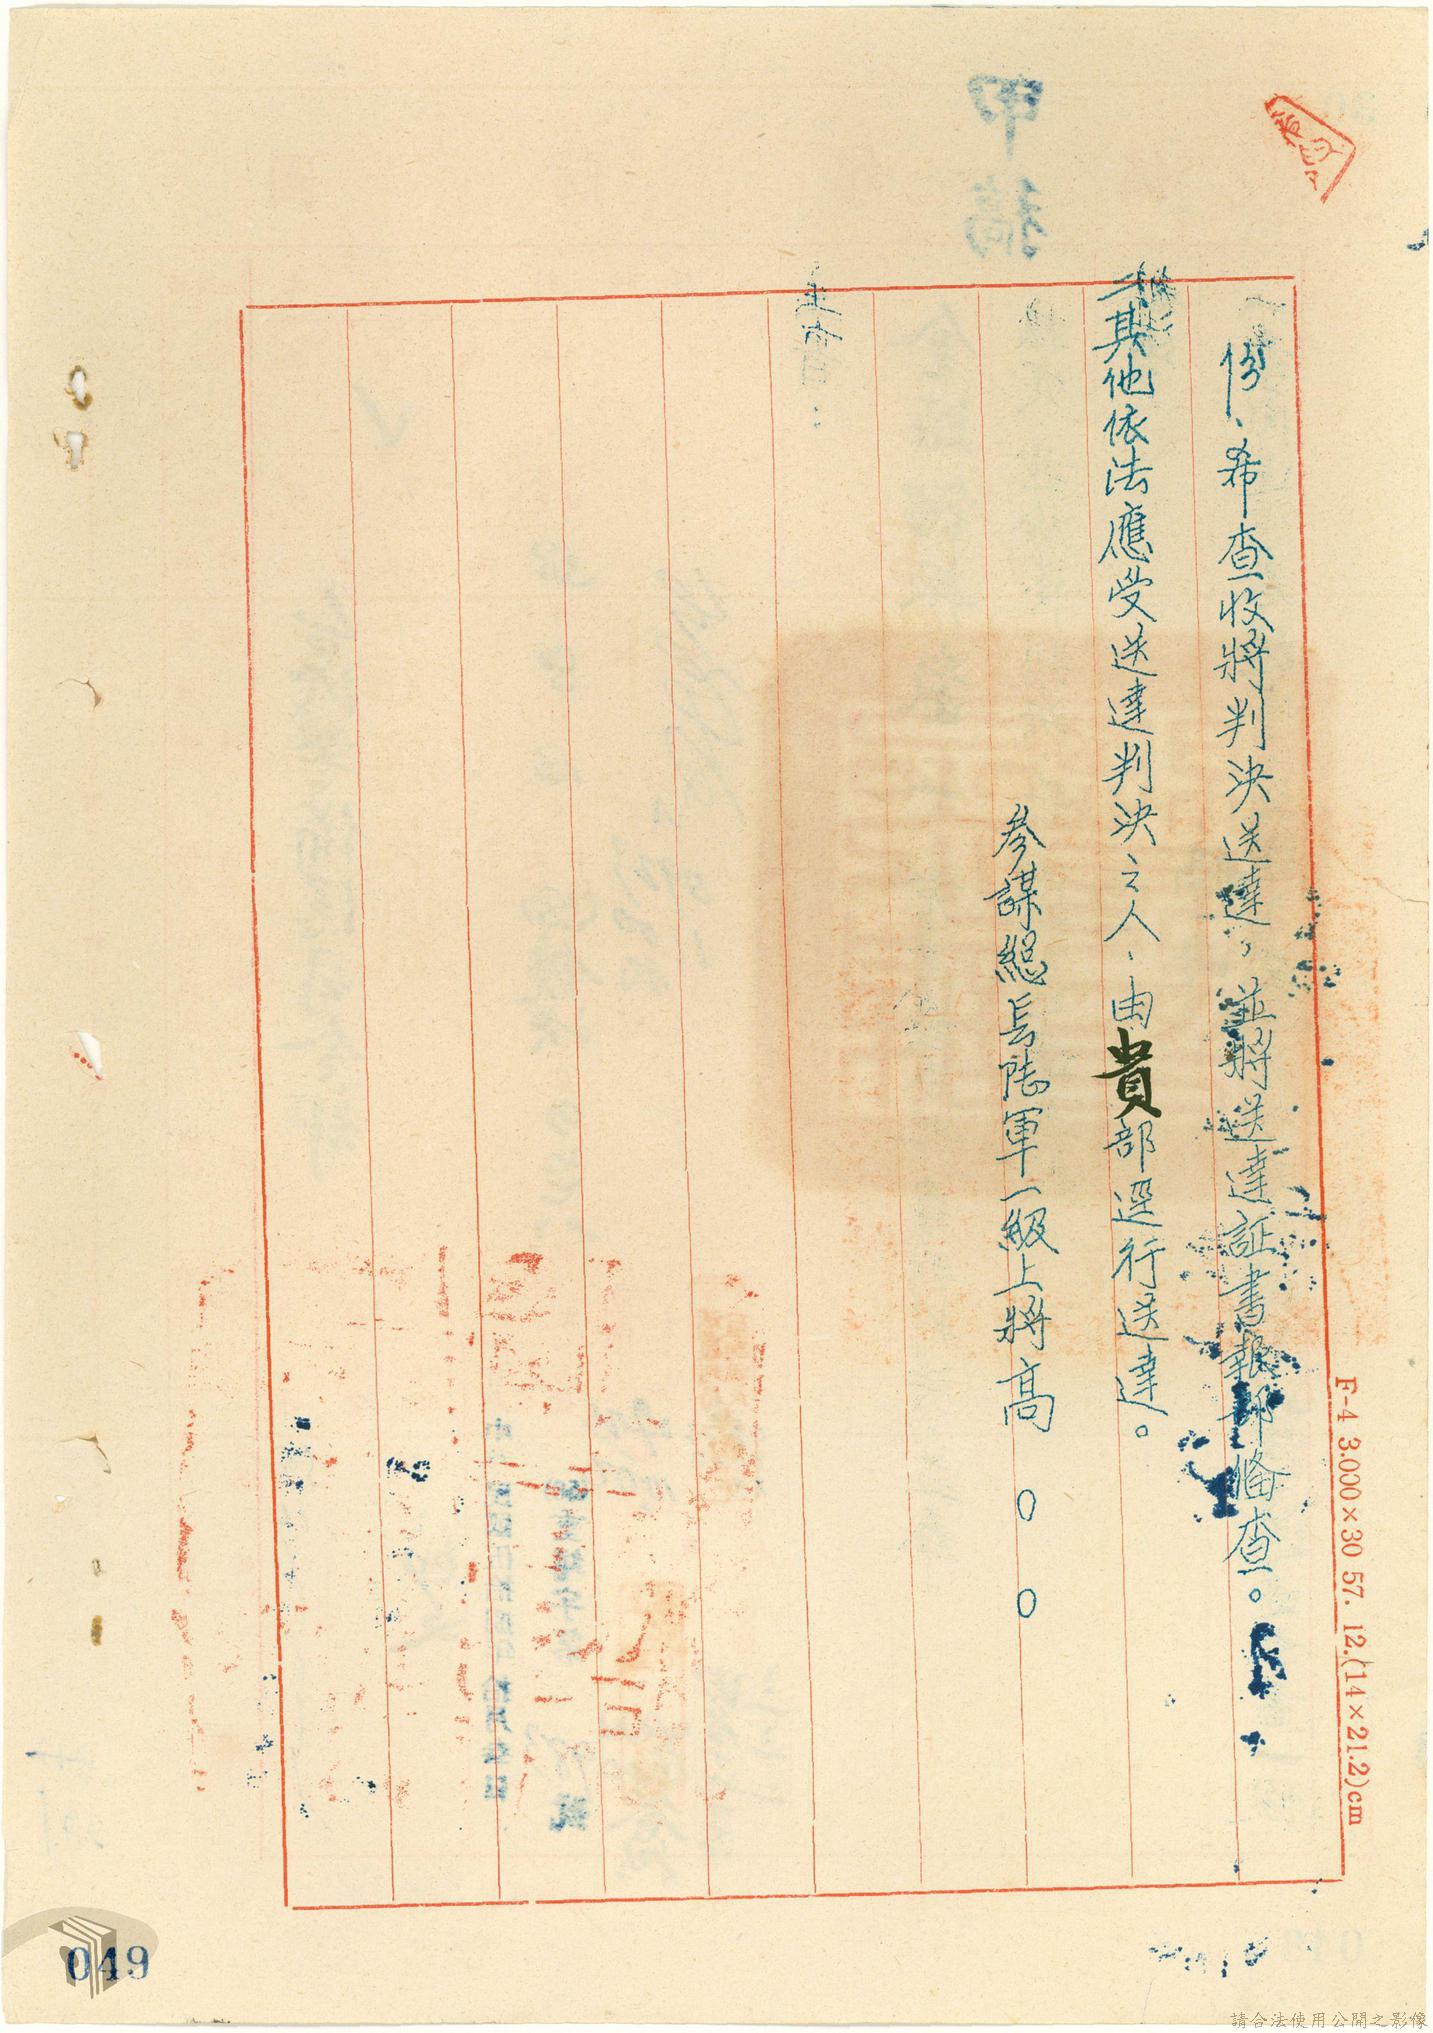 份、希查收將判決送達,並將送達証書報部備查。
二其他依法應受送達判決之人、由貴部逕行送達。
參謀總長陸軍一級上將高〇〇
F-4 3.000×30 57. 12.(14×21.2)cm
049
請合法使用公開之影像